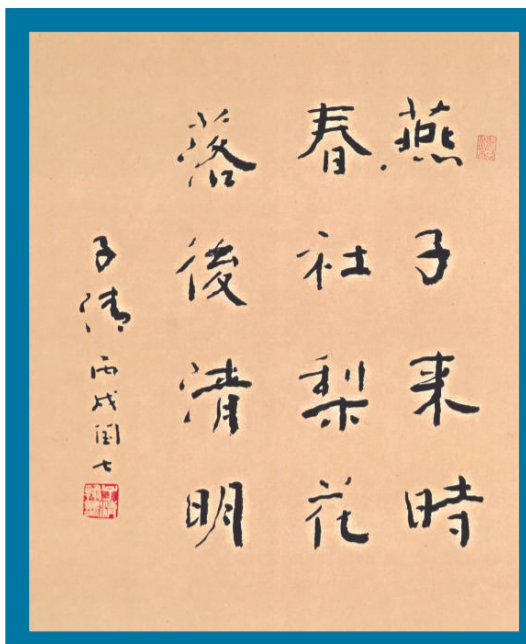 燕子来時
春社梨花
落後清明
子清 丙戌閏七